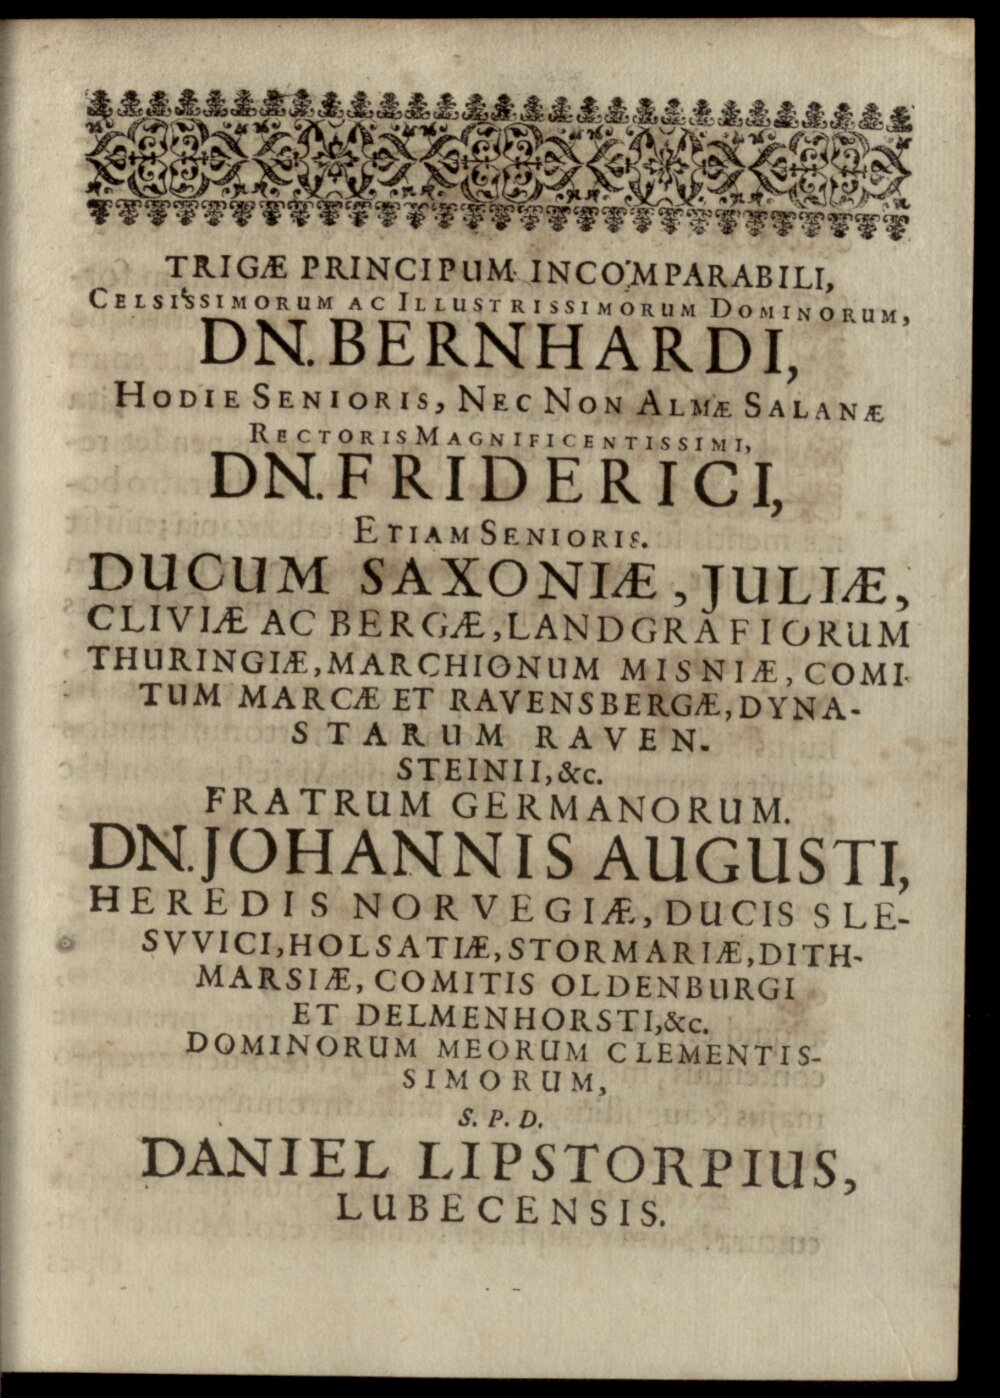 TRIGÆ PRINCIPUM INCOMPARABILI,
CELSISSIMORUM AC ILLUSTRISSIMORUM DOMINORUM,
DN. BERNHARDI,
HODIE SENIORIS, NEC NON ALMÆ SALANÆ
RECTORIS MAGNIFICENTISSIMI,
DN. FRIDERICI,
ETIAM SENIORIS.
DUCUM SAXONIÆ, JULIÆ,
CLIVIÆ AC BERGÆ, LANDGRAFIORUM
THURINGIÆ, MARCHIONUM MISNIÆ, COMI-
TUM MARCÆ ET RAVENSBERGÆ, DYNA-
STARUM RAVEN-
STEINII, &c.
FRATRUM GERMANORUM.
DN. JOHANNIS AUGUSTI,
HEREDIS NORVEGIÆ, DUCIS SLE-
SVVICI, HOLSATIÆ, STORMARIÆ, DITH-
MARSIÆ, COMITIS OLDENBURGI
ET DELMENHORSTI, &c.
DOMINORUM MEORUM CLEMENTIS-
SIMORUM,
S. P. D.
DANIEL LIPSTORPIUS,
LUBECENSIS.